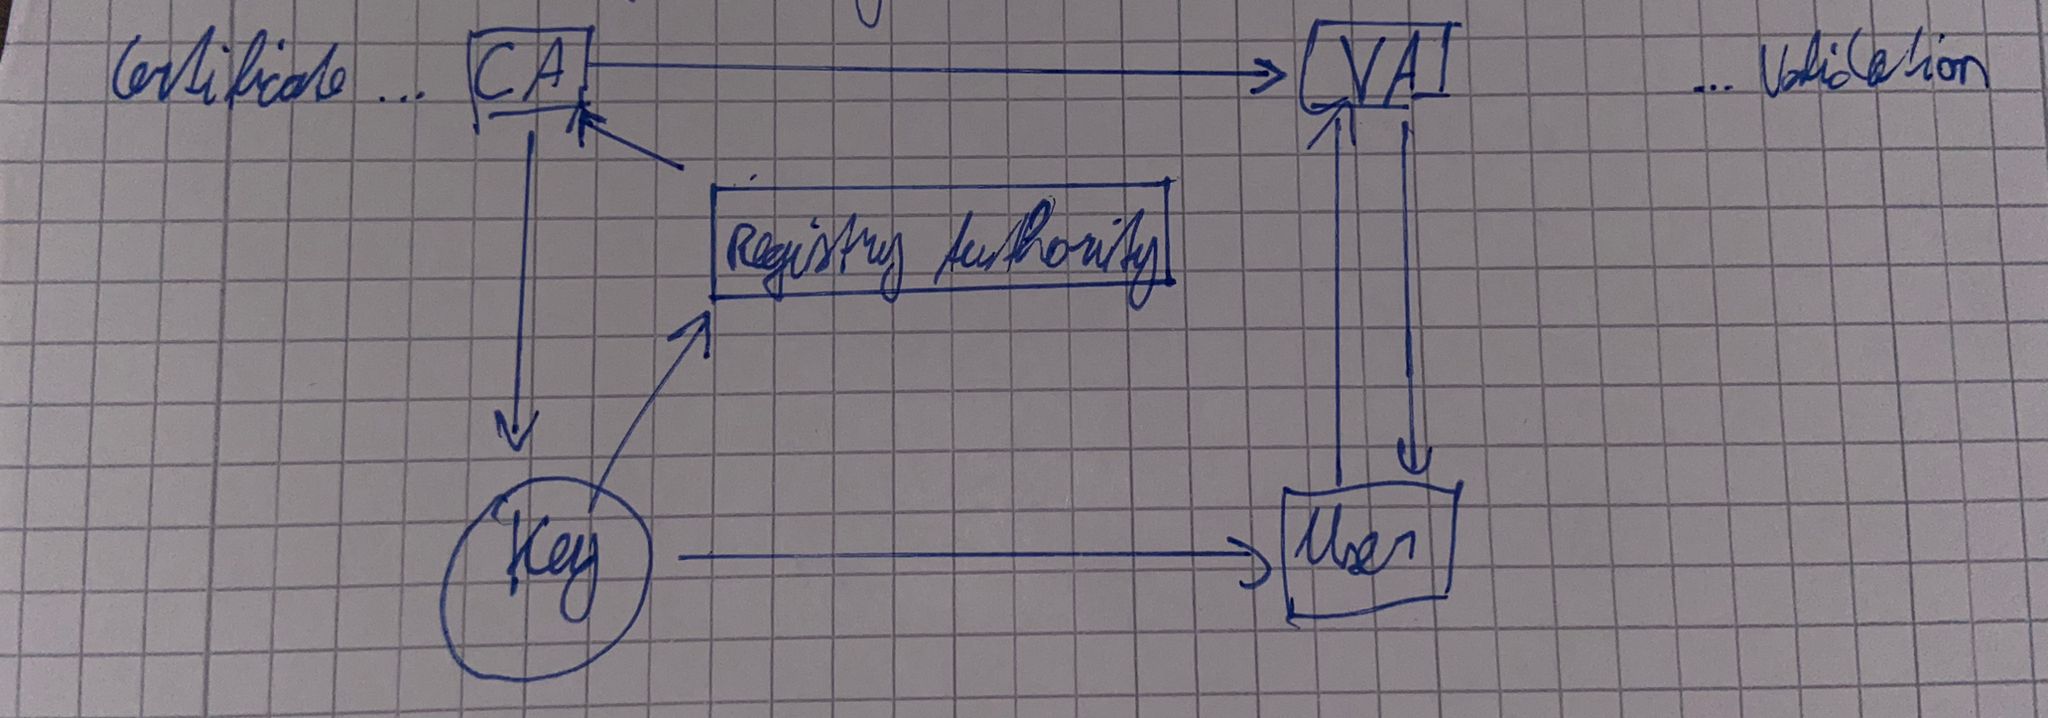 Certificate ... CA VA ... Validation
Registry Authority
Key User